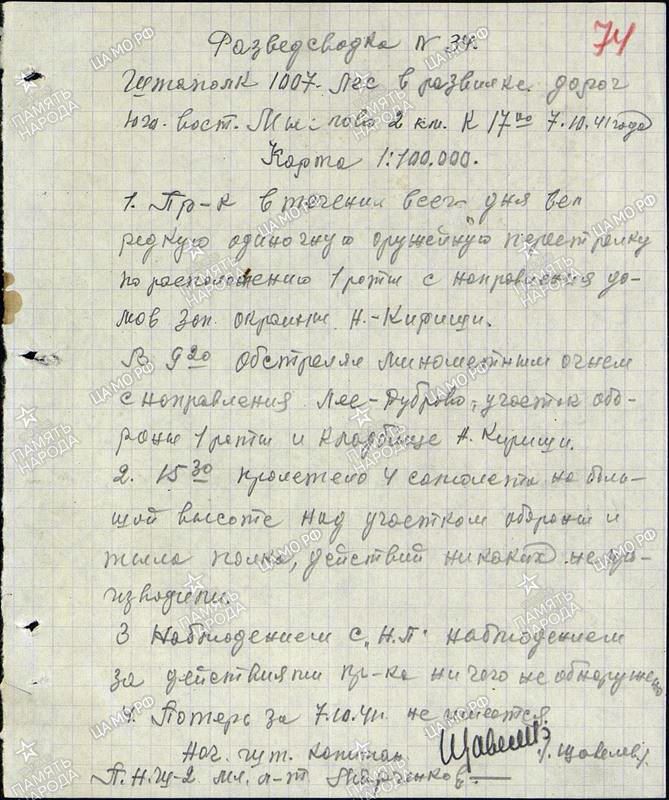 74
Разведсводка № 34.
Штаполк 1007. Лес в развилке дорог
юго-вост. Мыслово 2 км. К 17 00 7.10.41 года
Карта 1:100.000.
1. Пр-к в течении всего дня вел
редкую одиночную оружейную перестрелку
по расположению 1 роты с направления до-
мов зап. окраины Н.-Кириши.
В 9 20 обстрелял минометным огнем
с направления Лес-Дуброво, участок обо-
роны 1 роты и кладбище Н. Кириши.
2. 15 30 пролетело 4 самолета на боль-
шой высоте над участком обороны и
тыла полка, действий никаких не про-
изводили.
3 Наблюдением с "Н.П." наблюдением
за действиями пр-ка ничего не обнаружено
4. Потерь за 7.10.41. не имеется
Нач. шт. капитан
П.Н.Ш-2 мл. л-т
ЦАМО.РФ
ПАМЯТЬ НАРОДА